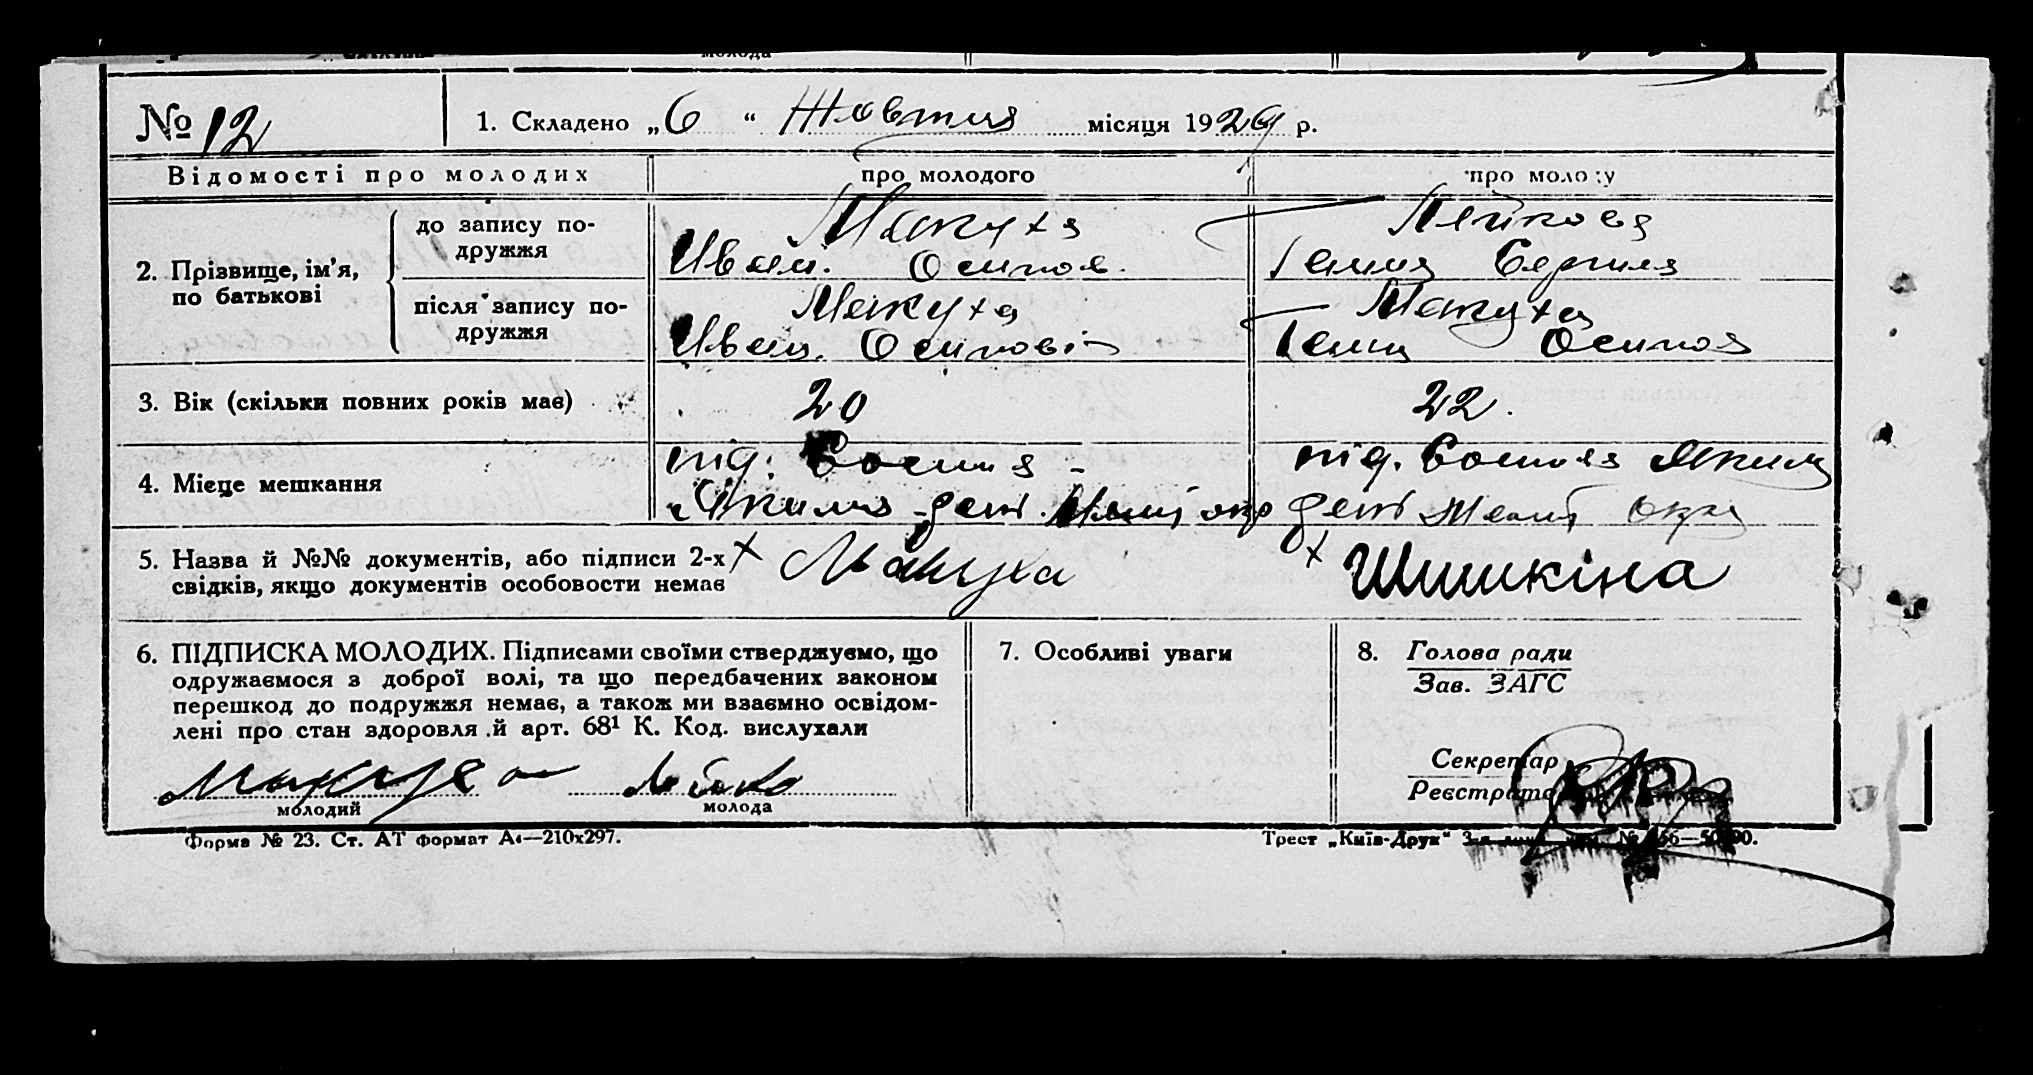 № 12
1. Складено „6“ Жовтня місяця 1929 р.
Відомості про молодих
про молодого
про молоду
2. Прізвище, ім'я, по батькові
до запису подружжя
Макуха
Иван. Осипов.
Ганна
після запису подружжя
Макуха
Иван. Осипові
Макуха
Ганна Осипов
3. Вік (скільки повних років має)
20
22.
4. Місце мешкання
під.
під.
5. Назва й №№ документів, або підписи 2-х
свідків, якщо документів особовости немає
Макуха
Шишкіна
6. ПІДПИСКА МОЛОДИХ. Підписами своїми стверджуємо, що
одружаємося з доброї волі, та що передбачених законом
перешкод до подружжя немає, а також ми взаємно освідом-
лені про стан здоровля й арт. 68¹ К. Код. вислухали
молодий
молода
7. Особливі уваги
8. Голова ради
Зав. ЗАГС
Секретар
Реєстратор
Форма № 23. Ст. АТ формат А4—210x297.
Трест „Київ-Друк“